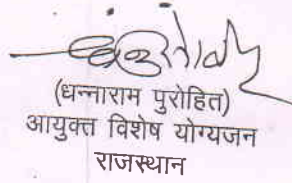 (धन्नाराम पुरोहित)
आयुक्त विशेष योग्यजन
राजस्थान